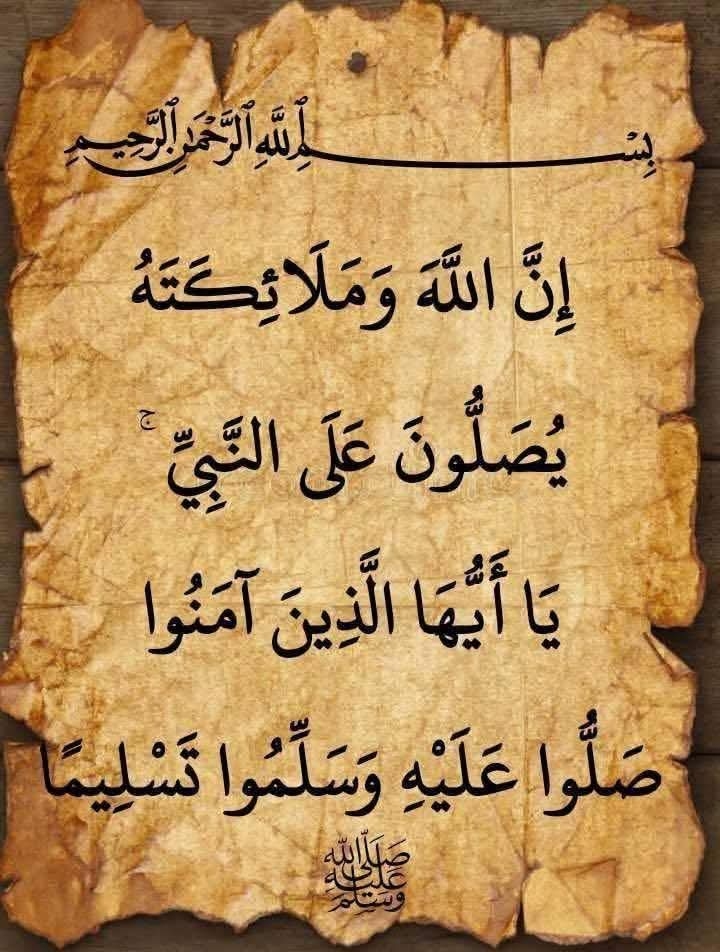 بِسْمِ ٱللَّهِ ٱلرَّحْمَٰنِ ٱلرَّحِيمِ
إِنَّ اللَّهَ وَمَلَائِكَتَهُ
يُصَلُّونَ عَلَى النَّبِيِّ ۚ
يَا أَيُّهَا الَّذِينَ آمَنُوا
صَلُّوا عَلَيْهِ وَسَلِّمُوا تَسْلِيمًا
صَلَّى اللَّهُ عَلَيْهِ وَسَلَّمَ